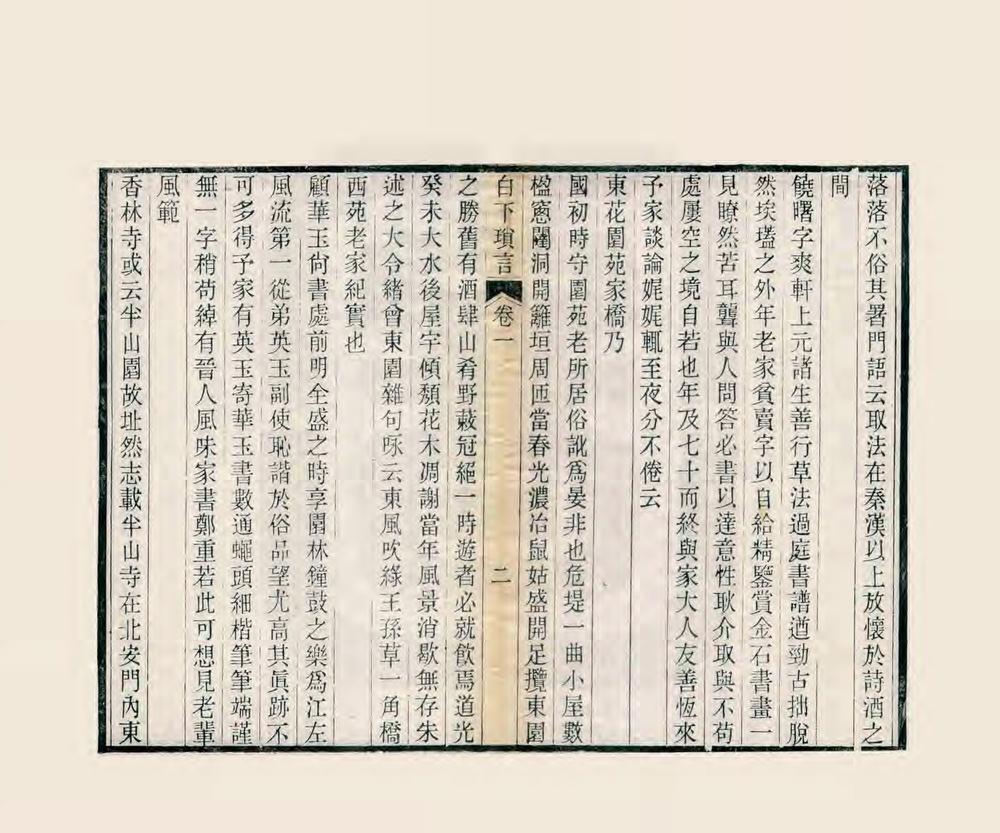 落落不俗其署門語云取法在秦漢以上放懷於詩酒之
間
饒曙字爽軒上元諸生善行草法過庭書譜遒勁古拙脫
然埃壒之外年老家貧賣字以自給精鑒賞金石書畫一
見瞭然苦耳聾與人問答必書以達意性耿介取與不苟
處屢空之境自若也年及七十而終與家大人友善恆來
予家談論娓娓輒至夜分不倦云
東花園苑家橋乃
國初時守園苑老所居俗訛爲晏非也危堤一曲小屋數
楹窻闥洞開籬垣周匝當春光濃冶鼠姑盛開足攬東園
白下瑣言 卷一 二
之勝舊有酒肆山肴野蔌冠絕一時遊者必就飲焉道光
癸未大水後屋宇傾頹花木凋謝當年風景消歇無存朱
述之大令緒曾東園雜句咏云東風吹綠王孫草一角橋
西苑老家紀實也
顧華玉尙書處前明全盛之時享園林鐘鼓之樂爲江左
風流第一從弟英玉副使恥諧於俗品望尤高其眞跡不
可多得予家有英玉寄華玉書數通蠅頭細楷筆筆端謹
無一字稍苟綽有晉人風味家書鄭重若此可想見老輩
風範
香林寺或云半山園故址然志載半山寺在北安門內東